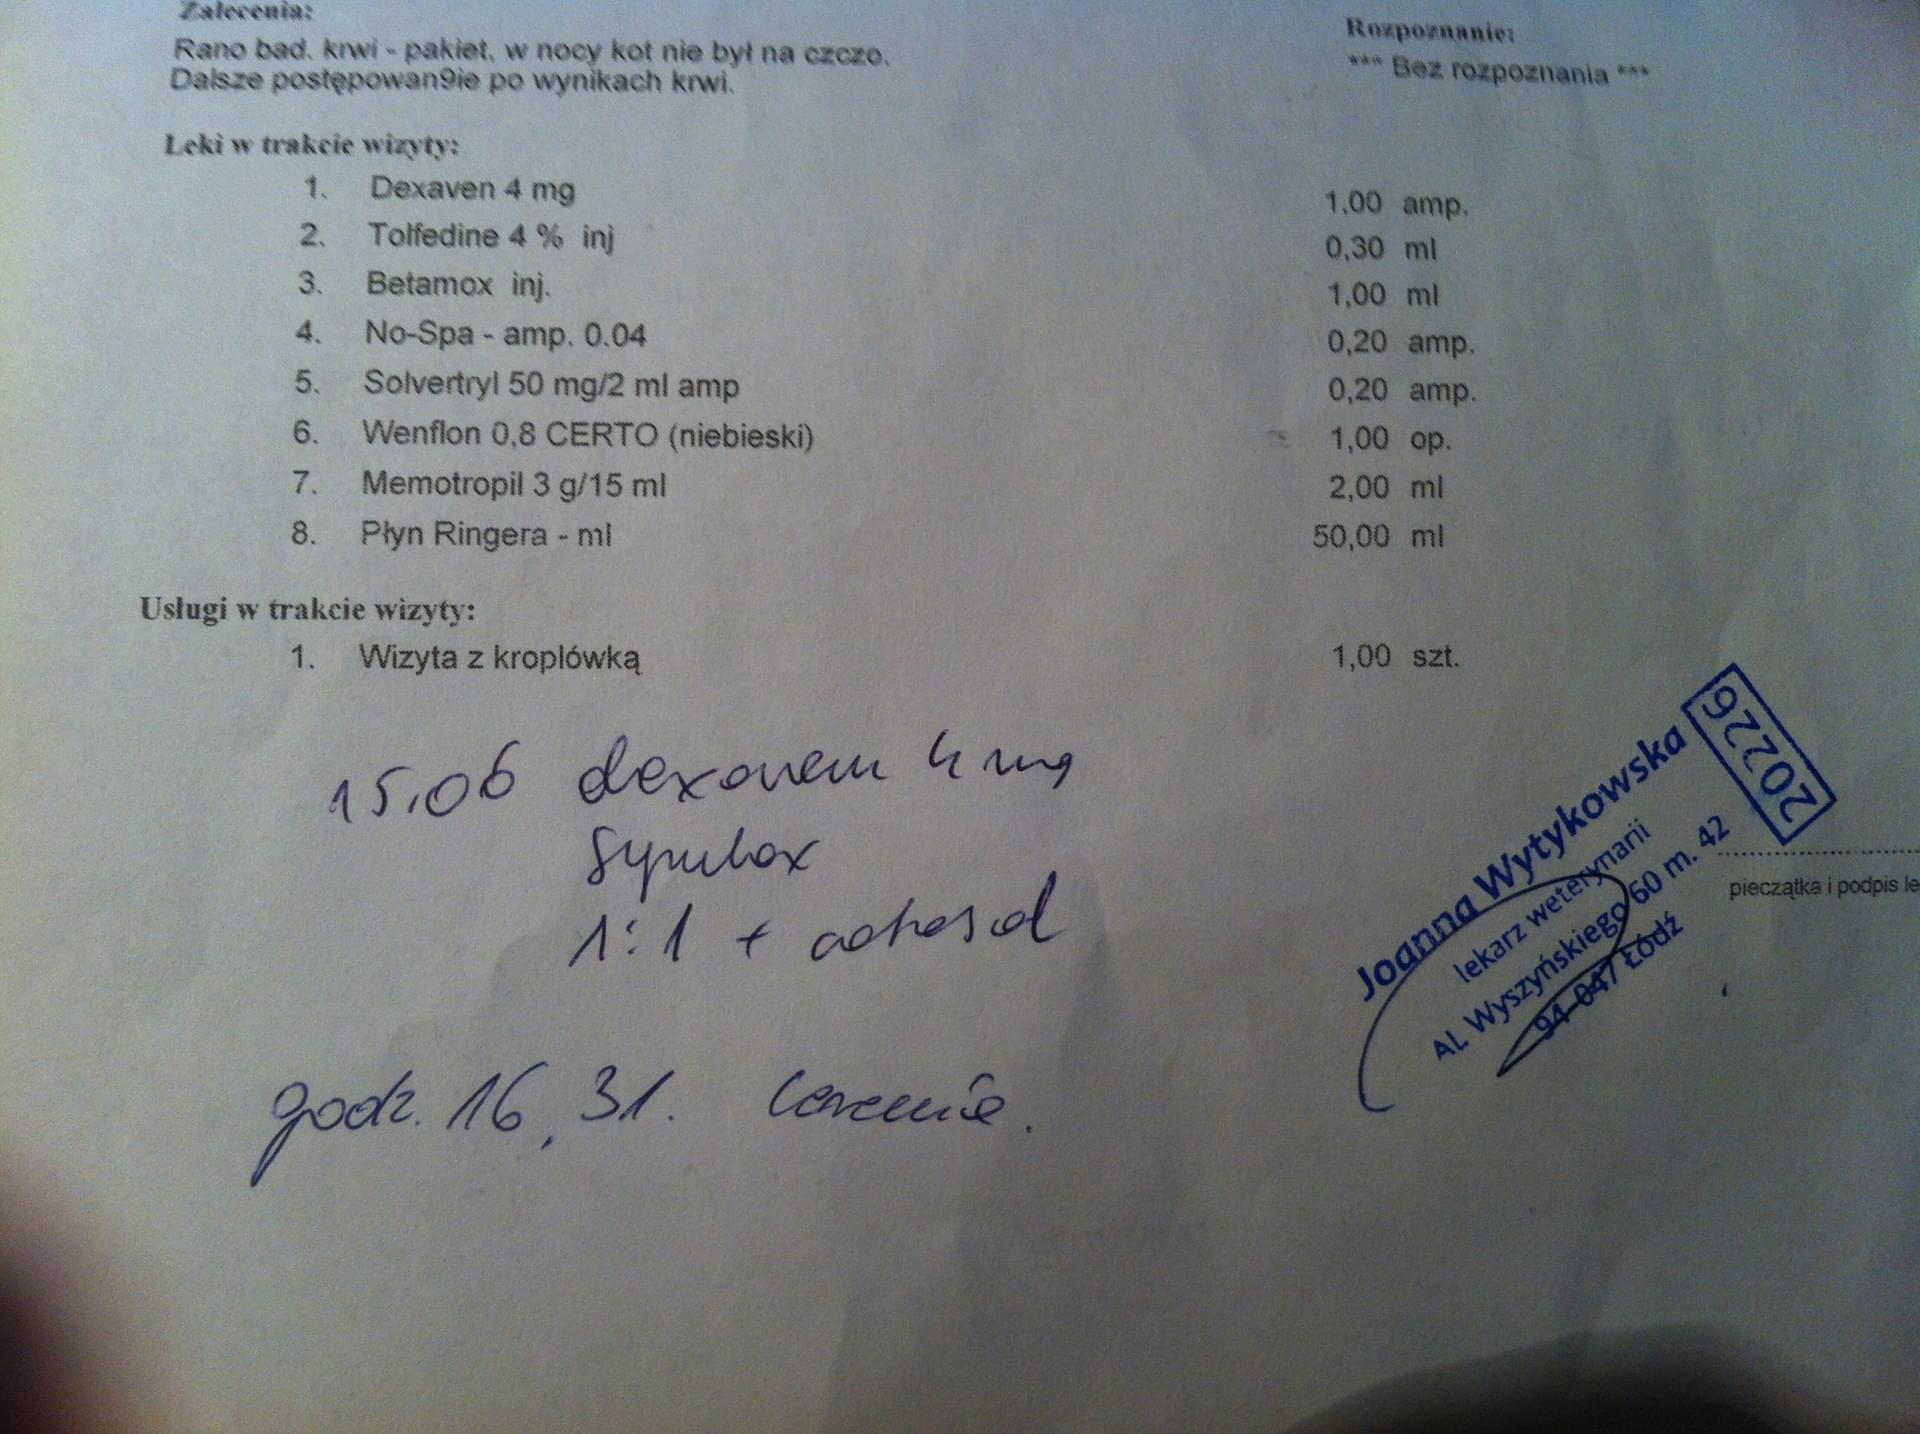 Zalecenia:
Rano bad. krwi - pakiet, w nocy kot nie był na czczo.
Dalsze postępowan9ie po wynikach krwi.
Rozpoznanie:
*** Bez rozpoznania ***
Leki w trakcie wizyty:
1. Dexaven 4 mg 1,00 amp.
2. Tolfedine 4 % inj 0,30 ml
3. Betamox inj. 1,00 ml
4. No-Spa - amp. 0.04 0,20 amp.
5. Solvertryl 50 mg/2 ml amp 0,20 amp.
6. Wenflon 0,8 CERTO (niebieski) 1,00 op.
7. Memotropil 3 g/15 ml 2,00 ml
8. Płyn Ringera - ml 50,00 ml
Usługi w trakcie wizyty:
1. Wizyta z kroplówką 1,00 szt.
15.06 dexaven 4 mg
1:1 +
godz. 16,31.
20226
Joanna Wytykowska
lekarz weterynarii
Al. Wyszyńskiego 60 m. 42
94-047 Łódź
pieczątka i podpis le